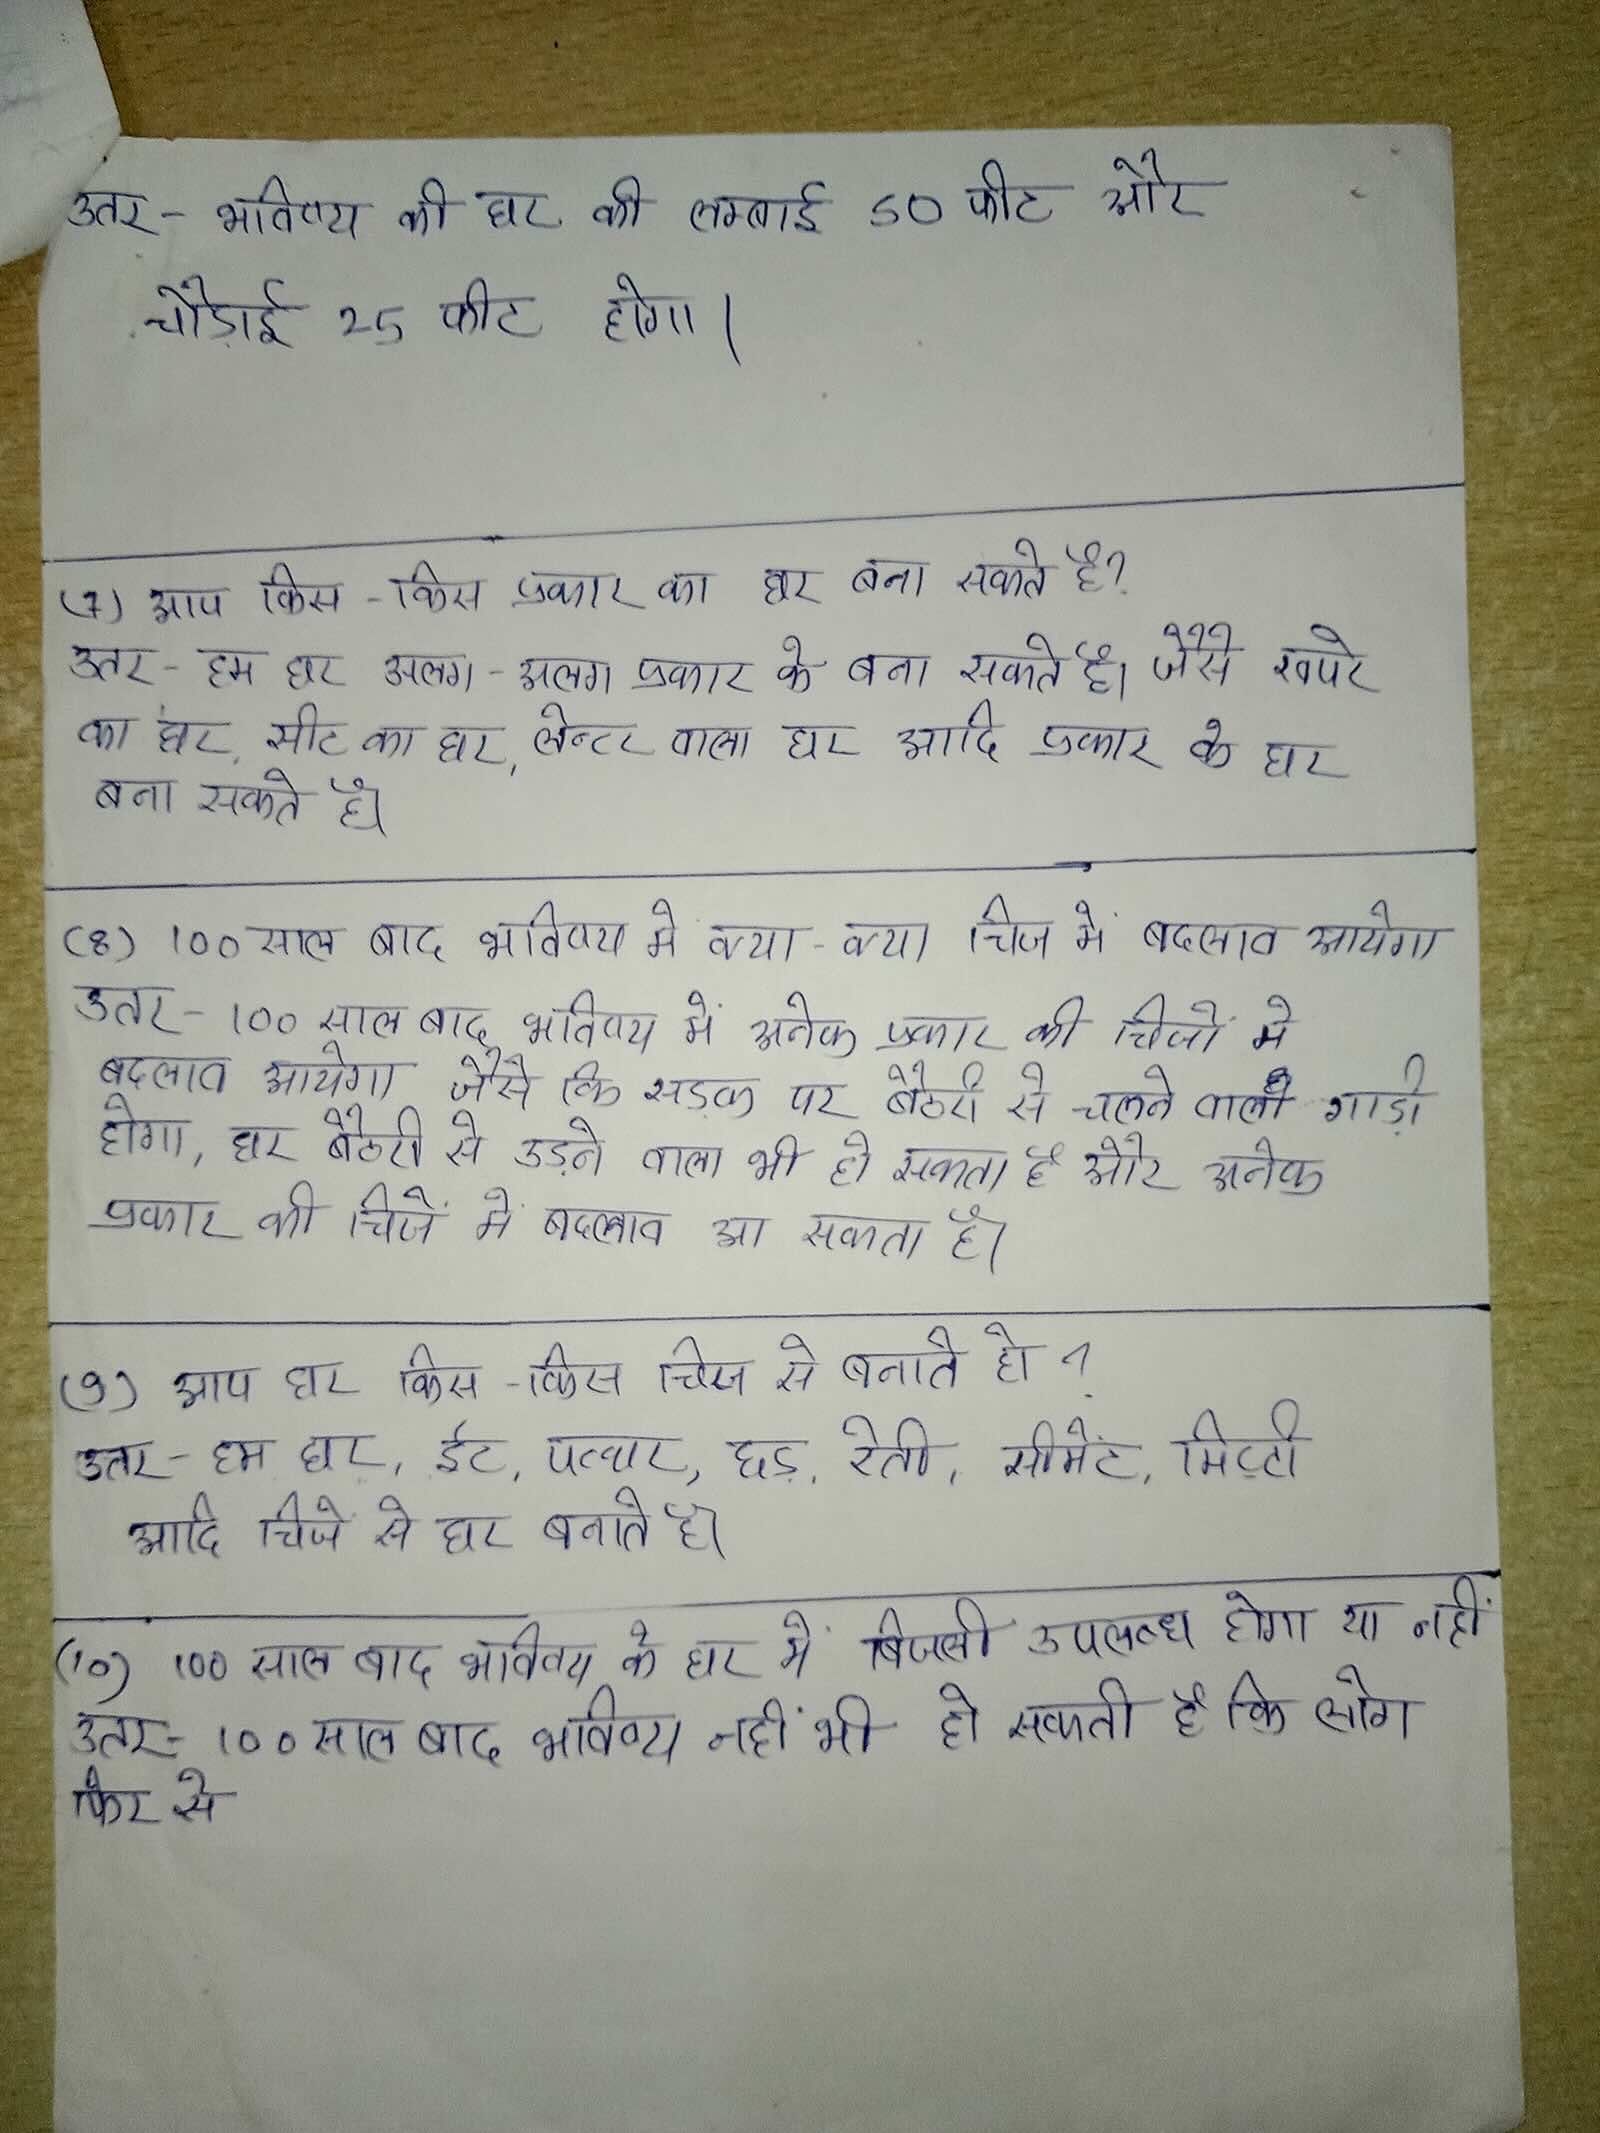 उतर - भविष्य की घर की लम्बाई 50 फीट और
चौड़ाई 25 फीट होगा।
(7) आप किस - किस प्रकार का घर बना सकते है?
उतर - हम घर अलग - अलग प्रकार के बना सकते है। जैसे खपरे
का घर, सीट का घर, लेन्टर वाला घर आदि प्रकार के घर
बना सकते है।
(8) 100 साल बाद भविष्य मे क्या - क्या चिज में बदलाव आयेगा
उतर - 100 साल बाद भविष्य में अनेक प्रकार की चिजों मे
बदलाव आयेगा जैसे कि सड़क पर बैठरी से चलने वाली गाड़ी
होगा, घर बैठरी से उड़ने वाला भी हो सकता है और अनेक
प्रकार की चिजें में बदलाव आ सकता है।
(9) आप घर किस - किस चिज से बनाते हो ?
उतर - हम घर, ईट, पत्थर, छड़, रेती, सीमेंट, मिट्टी
आदि चिजे से घर बनाते है।
(10) 100 साल बाद भविष्य के घर में बिजली उपलब्ध होगा या नहीं
उतर - 100 साल बाद भविष्य नहीं भी हो सकती है कि लोग
फिर से